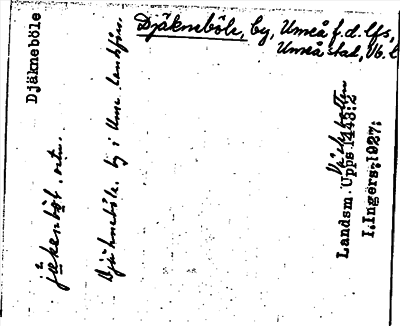 Djäkneböle, by, Umeå f.d. lfs,
Umeå stad, Vb. l
Djäkneböle
jäkenböḷ. ortn.
Djäkneböle. by i Ume landsförs.
Västerbotten
Landsm. Upps 1443:2
I.Ingers,1927: